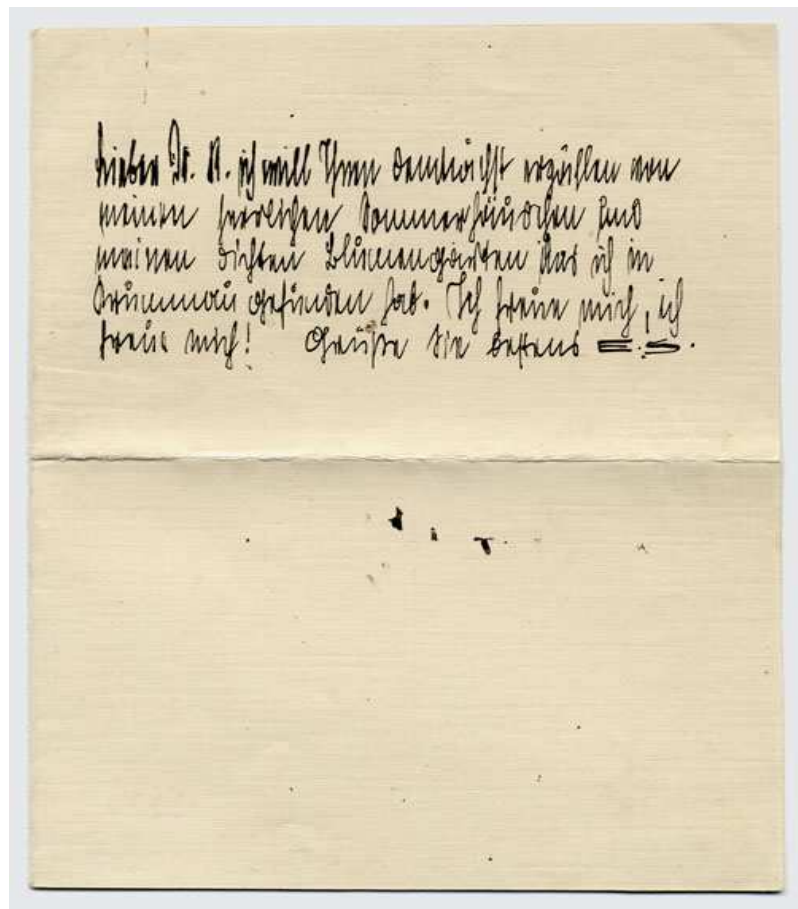 Lieber Dr. R. ich will Ihnen demnächst erzählen von
meinen herrlichen Sommerhäuschen und
meinen dichten Blumengarten das ich in
Krummau gefunden hab. Ich freue mich, ich
freue mich! Grüße Sie bestens E.S.